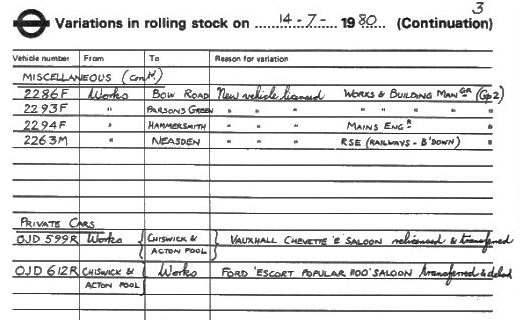 3
Variations in rolling stock on 14-7- 1980 (Continuation)
Vehicle number From To Reason for variation
MISCELLANEOUS (Contd.)
2286F Works BOW ROAD New vehicle licensed WORKS & BUILDING MANGR (Gp 2)
2293F " PARSONS GREEN " " " " " " "
2294F " HAMMERSMITH " " " MAINS ENGR "
2263M " NEASDEN " " " RSE (RAILWAYS - B'DOWN) "
PRIVATE CARS
OJD 599R Works { CHISWICK & ACTON POOL } VAUXHALL CHEVETTE 'E' SALOON relicensed & transferred
OJD 612R CHISWICK & ACTON POOL } Works FORD 'ESCORT POPULAR 1100' SALOON transferred &